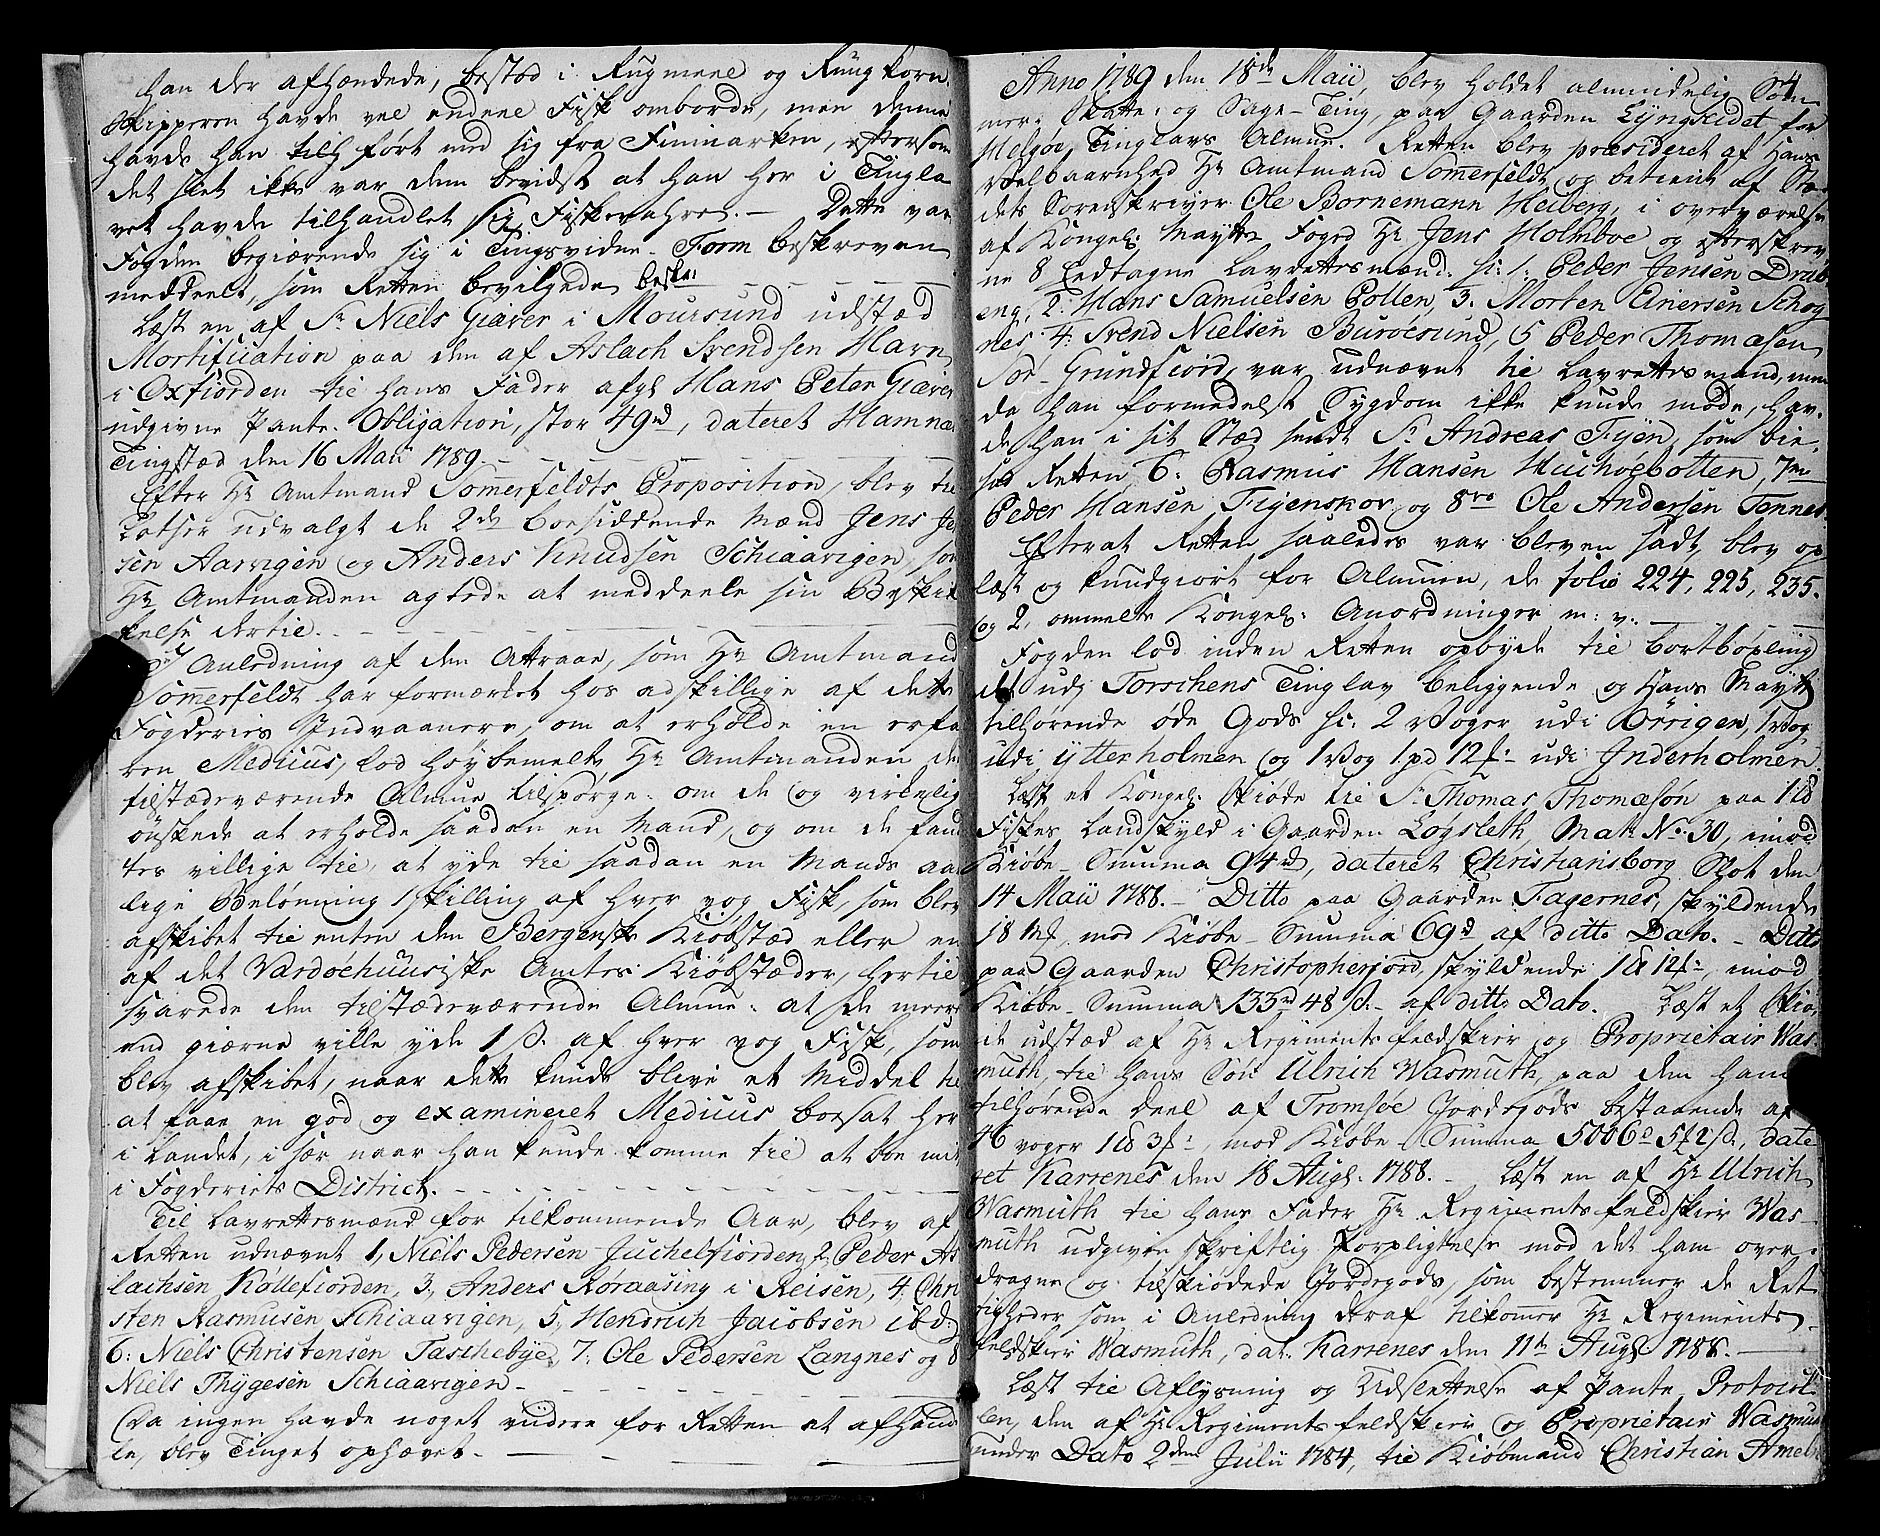 han der afhændede, bestod i Rugmeel og Rungkorn.
Skipperen havde vel endeel Fisk ombord, men denne
havde han ført med sig fra Finmarken, eftersom
det slet ikke var dem bevidst at han her i Tingla
vet havde tilhandlet sig Fiskevahre. – Dette var
Fogden begiærende sig i Tingsvidne Form beskreven
meddeelt, som Retten bevilgede
Læst en af Sr. Niels Giæver i Moursund udstæd
Mortification paa den af Aslach Svendsen Havn
i Oxfiorden til hans Fader afgl. Hans Peter Giæver
udgivne Pante Obligation, stor 49 rd, dateret Hamnæs
Tingstæd den 16 Maii 1789.
Efter Hr. Amtmand Sommerfeldts Proposition, blev til
Lotser udvalgt de 2de boesiddende Mænd Jens Je
sen Aarvigen og Anders Knudsen Schiaarvigen, som
Hr. Amtmanden agtede at meddeele sin Beskik
kelse dertil.
I Anledning af den Attraae, som Hr. Amtmand
Sommerfeldt har formærket hos adskillige af dette
Fogderies Indvaanere, om at erholde en erfa
ren Medicus, lod Høybemelte Hr. Amtmanden de
tilstædeværende Almue tilspørge: om de og virkelig
ønskede at erholde saadan en Mand, og om de fand
tes villige til, at yde til saadan en Mands aar
lige Belønning 1 skilling af hver vog Fisk, som blev
afskibet til enten den Bergenske Kiøbstæd eller en
af det Vardøehuusiske Amtes Kiøbstæder, hertil
svarede den tilstædeværende Almue: at de meere
end giærne ville yde 1 s. af hver vog Fisk, som
blev afskibet, naar dette kunde blive et Middel til
at faae en god og examineret Medicus boesat her
i Landet, i sær naar han kunde komme til at boe mit
i Fogderiets District.
Til Lavrettesmænd for tilkommende Aar, blev af
Retten udnævnt 1, Niels Pedersen Juchelfiorden, 2, Peder As
lachsen Køllefiorden, 3, Anders Roraasing i Reisen, 4, Chri
sten Rasmusen Schiaarvigen, 5, Henrich Jacobsen ibd:
6: Niels Christensen Taschebye, 7: Ole Pedersen Langnes og 8
Niels Thygesen Schiaarvigen.
Da ingen havde noget videre for Retten at afhand
le, blev Tinget ophævet.
4
Anno 1789 den 18de Maii, blev holdet almindelig Som
mer- Skatte- og Sage-Ting, paa Gaarden Lyngseidet for
Helgøe Tinglavs Almue. Retten blev præsideret af Hans
Velbaarenhed Hr. Amtmand Sommerfeldt og betient af Stæ
dets Sorenskriver Ole Bornemann Heiberg, i overværelse
af Kongel: Mayts Foged Hr. Jens Holmboe og efterskrev
ne 8 Eedtagne Lavrettesmænd: sc: 1: Peder Jensen Drab
eng, 2: Hans Samuelsen Pollen, 3: Morten Einersen Schog
nes 4: Svend Nielsen Burøesund, 5 Peder Thomæsen
Sør-Grundfiord, var udnævnt til Lavrettesmand, men
da han formedelst Sygdom ikke kunde møde, hav
de han i sit Stæd sendt Sr. Andreas Fyen, som bie
sad Retten, 6: Rasmus Hansen Huchøebotten, 7me
Peder Hansen Figenskov, og 8vo Ole Andersen Tønnes.
Efterat Retten saaledes var bleven sadt, blev op
læst og kundgiort for Almuen, de folio 224, 225, 235.
og 2, ommelte Kongel: Anordninger m: v:
Fogden lod inden Retten opbyde til bortbøxling
det udj Torschens Tinglav beliggende og Hans Mayt
tilhørende øde Gods sc: 2 Voger udi Ørvigen, 1 Vog
udi Ytterholmen og 1 Vog 1 pd 12 f: udi Inderholmen.
Læst et Kongel: Skiøde til Sr. Thomas Thomæsøn paa 1 lb
Fiskes Landskyld i Gaarden Løgsleth, Matr. No. 30, imod
Kiøbe-Summa 94 rd, dateret Christiansborg Slot den
14 Maii 1788. – Ditto paa Gaarden Fagernes, skyldende
18 mf mod Kiøbe-Summa 69 rd af ditto Dato. – Ditto
paa Gaarden Christopherjord, skyldende 1 lb 12 f:, imod
Kiøbe-Summa 133 rd 48 s. – af ditto Dato. Læst et Skiø
de udstæd af Hr. Regimentsfeldskier og Proprietair Was
muth, til hans Søn Ulrich Wasmuth, paa den ham
tilhørende Deel af Tromsøe Jordegods bestaaende af
46 voger 1 lb 3 f:, mod Kiøbe-Summa 5006 d 5 f 2 s., date
ret Karrenes den 18 Augl. 1788. – Læst en af Hr. Ulrich
Wasmuth til hans Fader Hr. Regimentsfeldskier Was
muth udgiven skriftlig Forpligtelse mod det ham over
dragne og tilskiødede Jordegods, som bestemmer de Ret
tigheder som i Anledning deraf tilkommer Hr. Regiments
feldskier Wasmuth, dat. Karrenes den 11te Augl. 1788.
Læst til Aflysning og Udslettelse af Pante Protocol
len, den af Hr. Regimentsfeldskier og Proprietair Wasmuth
under Dato 2den Julii 1784, til Kiøbmand Christian Ameln